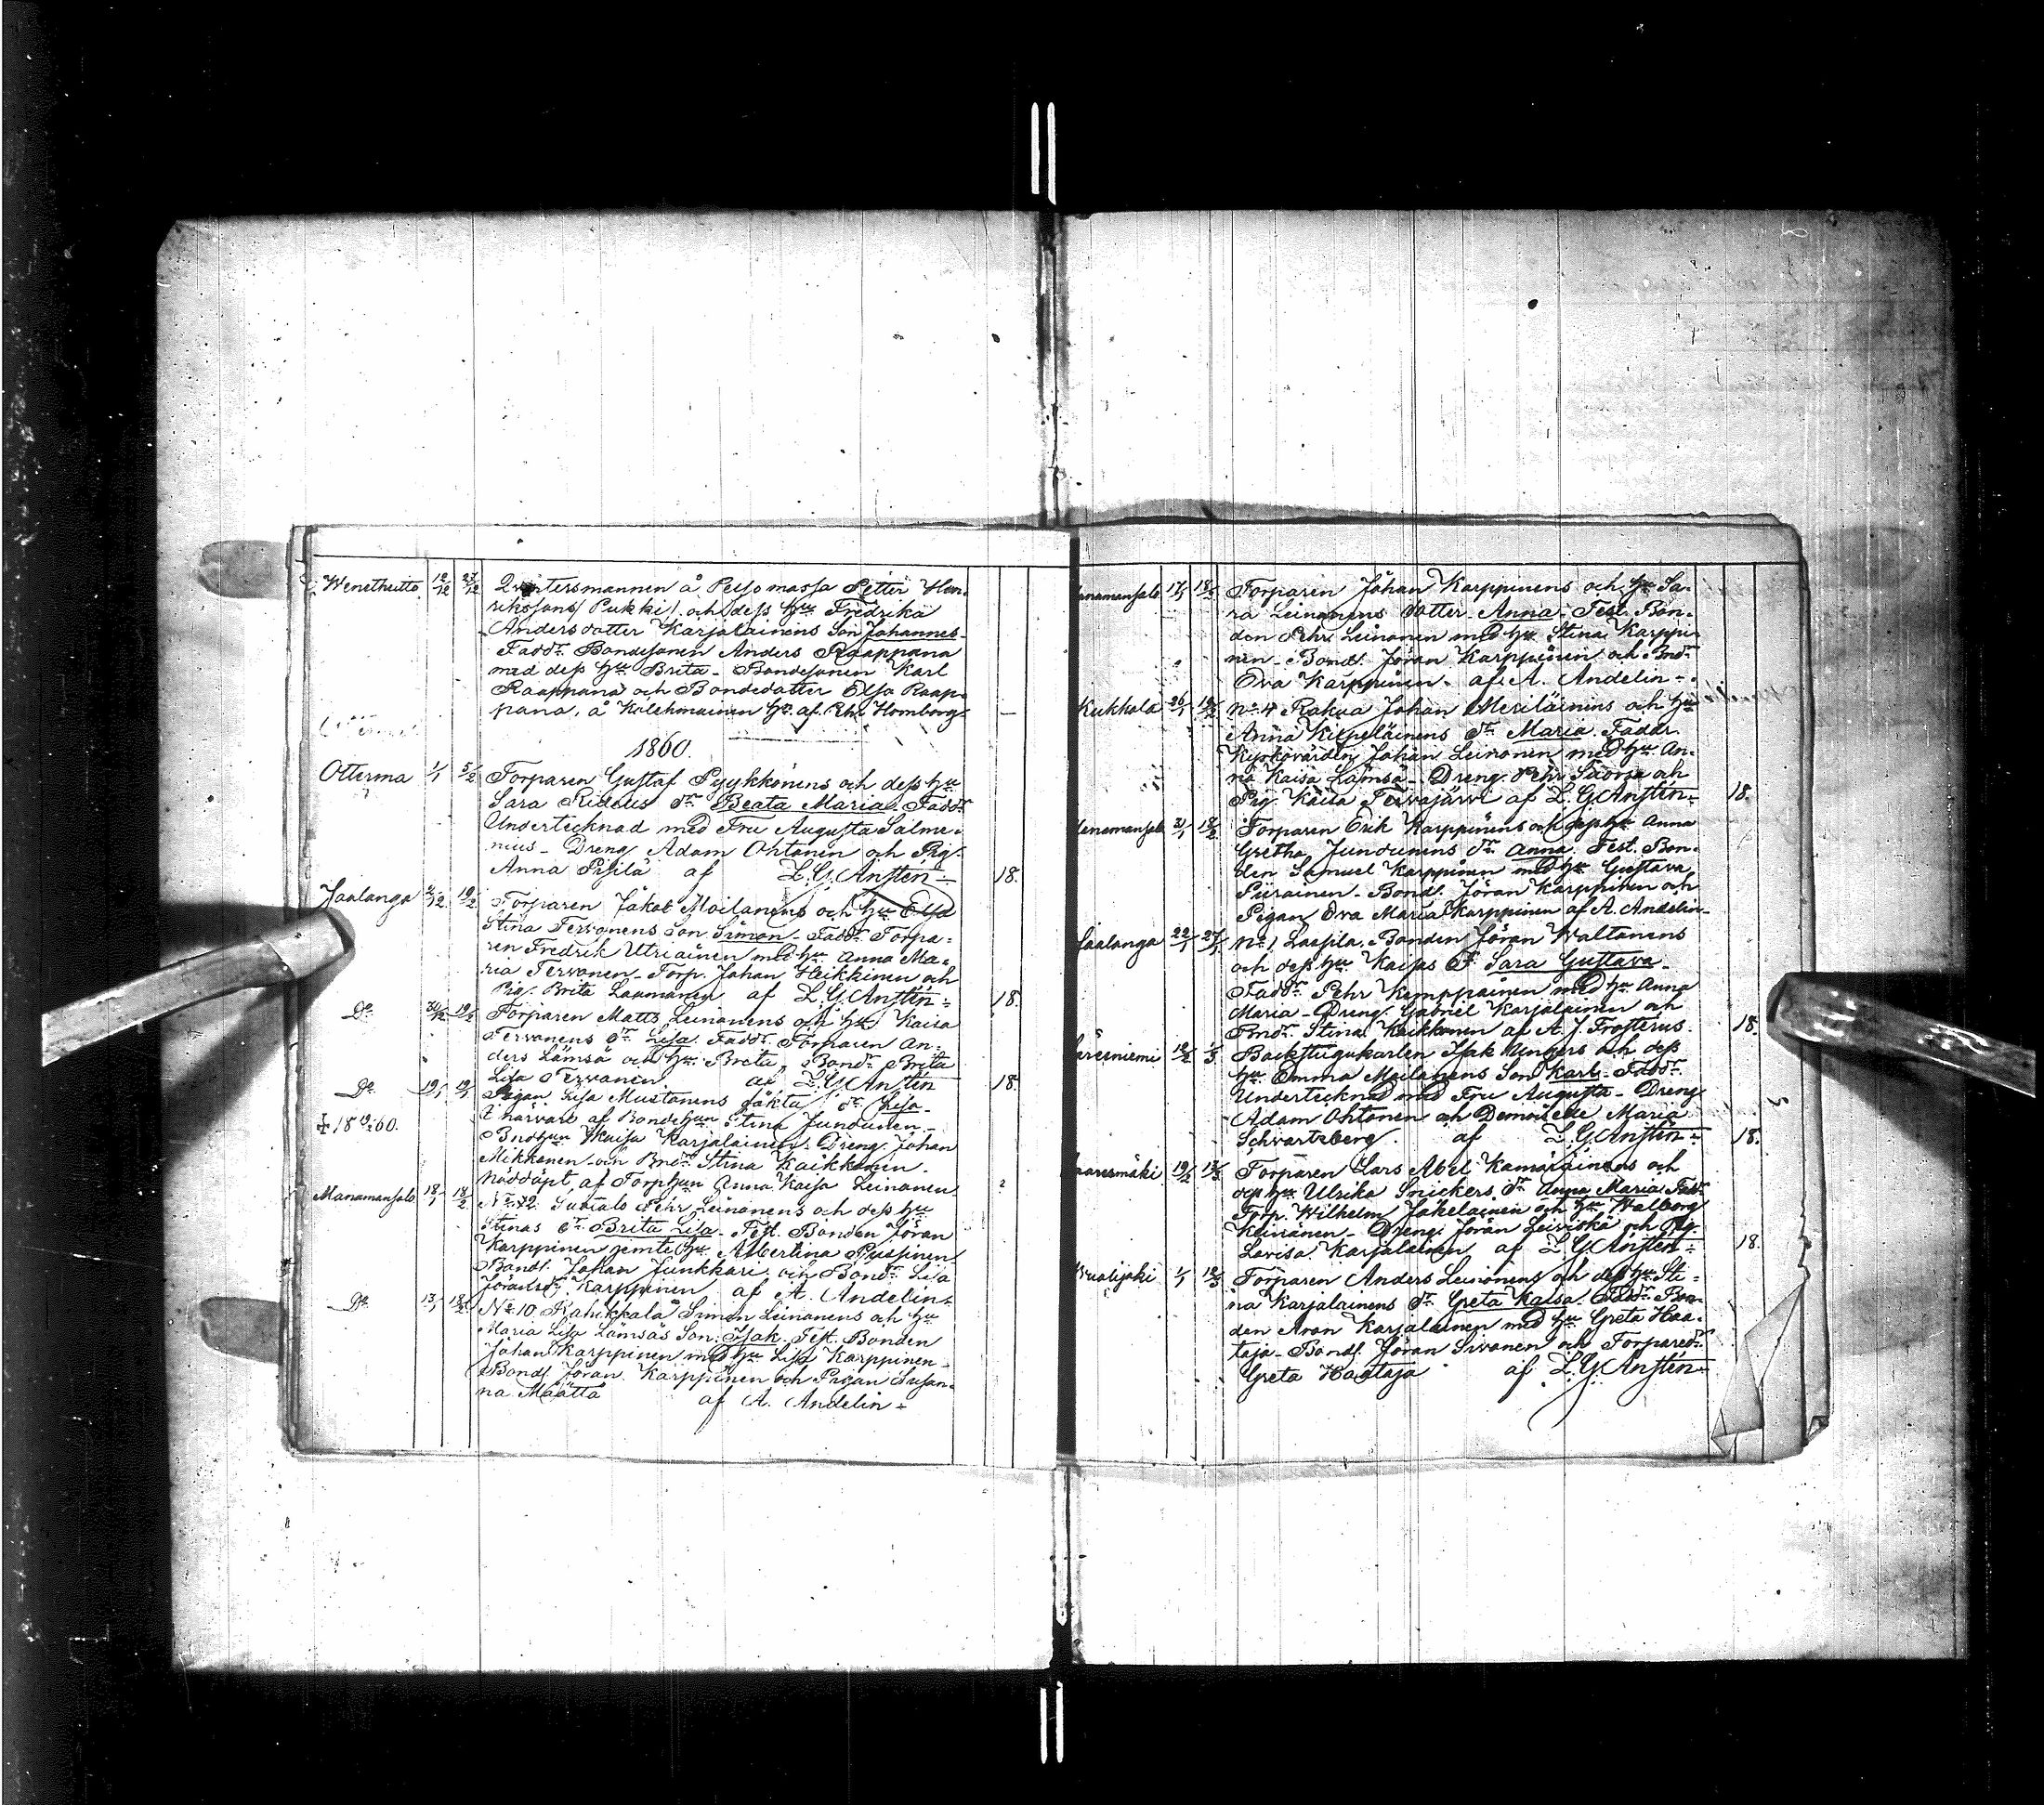 Wenetheitto 12/12 27/12 Qvartersmannen å Pelso mossa Petter Hen-
rikssons/Pukki/ och dess hu Fredrika
Andersdotter Karjalainens Son Johannes-
Faddr Bondesonen Anders Raappana
med dess hu Brita - Bondesonen Karl
Raappana och Bondedotter Elsa Raap-
pana, å hu af Pehr Homborg
1860.
Otterma 1/1 5/2 Torparen Gustaf Pyykkönens och dess hu
Sara dr Beata Maria Faddr
Undertecknad med Fru Augusta Salme-
nius - Dreng Adam Ohtonen och Pig.
Anna Pisilä af L.G. Ansten 18.
Jaalanga 19/2 Torparen Jakob Moilanens och hu Elsa
Stina Tervonens son Simon - Faddr Torpa-
ren Fredrik Utriainen med hu Anna Ma-
ria Tervonen - Torp. Johan Heikkinen och
Pig. Brita Laumanen af L.G. Ansten 18
Do 30/12 19/2 Torparen Matts Leinonens och hu Kaisa
Tervonens dr Lisa. Faddr Torparen An-
ders Lämsä och hu Brita, Bondr Brita
Lisa Tervonen af L.G. Ansten 18
Do 19/1 19/1 Pigan Lisa Mustonens oäkta dr Lisa-
‡ 18 60. i närvaro af Bondehun Stina Jundunen -
Bndhun Kaisa Karjalainen - Dreng Johan
Mikkonen och Bndr Stina Kaikkonen.
Nöddöpt af Torphun Anna Kaisa Leinonen
Manamansalo 18/1 18/2 No 72 Pehr Leinonens och dess hu
Stinas dr Brita Lisa - Test. Bonden Jöran
Karppinen jemte hu Albertina Pyssinen
Bonds. Johan Junkkari och Bondr Lisa
Jöransdr Karppinen af A. Andelin
Do 13/1 18/2 No 10 Kahikkala Simon Leinonens och hu
Maria Lisa Lämsäs Son Isak. Test. Bonden
Johan Karppinen med hu Lisa Karppinen -
Bonds. Jöran Karppinen och Pigan Susan-
na Määttä af A. Andelin
anamansalo 18/2 Torparen Johan Karppinens och hu Sa-
ra Leinonens dotter Anna - Test. Bon-
den Pehr Leinonen med hu Stina Karppi-
nen - Bonds. Jöran Karppinen och Bndr
Eva Karppinen. af A. Andelin
Kukkola 26/1 No 4 Rokua Johan Meriläinens och hu
Anna Kilpeläinens dr Maria. Faddr
Kyrkovärden Johan Leinonen med hu An-
na Kaisa Lämsä - Dreng. Pehr Suorsa och
Pig. Kaisa Tervajärvi af L.G. Ansten 18.
anamansalo 31/1 18/2 Torparen Erik Karppinens och dess hu Anna
Gretha Jundunens dr Anna. Test. Bon-
den Samuel Karppinen med hu Gustava
Piirainen - Bonds. Jöran Karppinen och
Pigan Eva Maria Karppinen af A. Andelin
Jaalanga 22/1 No 1 Laapila. Bonden Jöran Waltanens
och dess hu Kaisas dr Sara Gustava -
Faddr Pehr Kemppainen med hu Anna
Maria - Dreng. Gabriel Karjalainen och
Bndr Stina Kaikkonen af A. J. Frosterus 18.
äräisniemi Backstugukarlen Isak Ungers och dess
hu Emma Moilanens Son Karl - Faddr
Undertecknad med Fru Augusta - Dreng
Adam Ohtonen och Demoiselle Maria
Schvartzberg. af L.G. Ansten 18.
aaresmäki 19/2 Torparen Lars Abel Kamäläinens och
dess hu Ulrika Snickers dr Anna Maria Faddr
Torp. Wilhelm Jäkelainen och hu Walborg
Keinänen - Dreng Jöran Leiviskä och Pig.
Lovisa Karjalainen af L.G. Ansten 18
Wuolijoki 1/1 Torparen Anders Leinonens och dess hu Sti-
na Karjalainens dr Greta Kaisa. Faddr Bon-
den Aron Karjalainen med hu Greta Haa-
taja - Bonds. Jöran Sivonen och Torparedr
Greta Haataja af L.G. Ansten